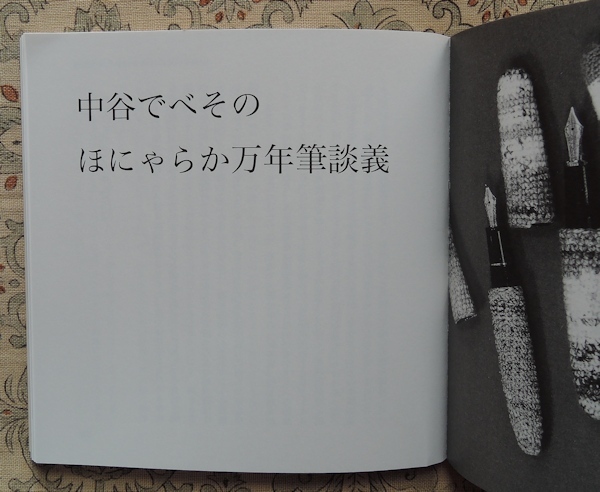 中谷でべその
ほにゃらか万年筆談義